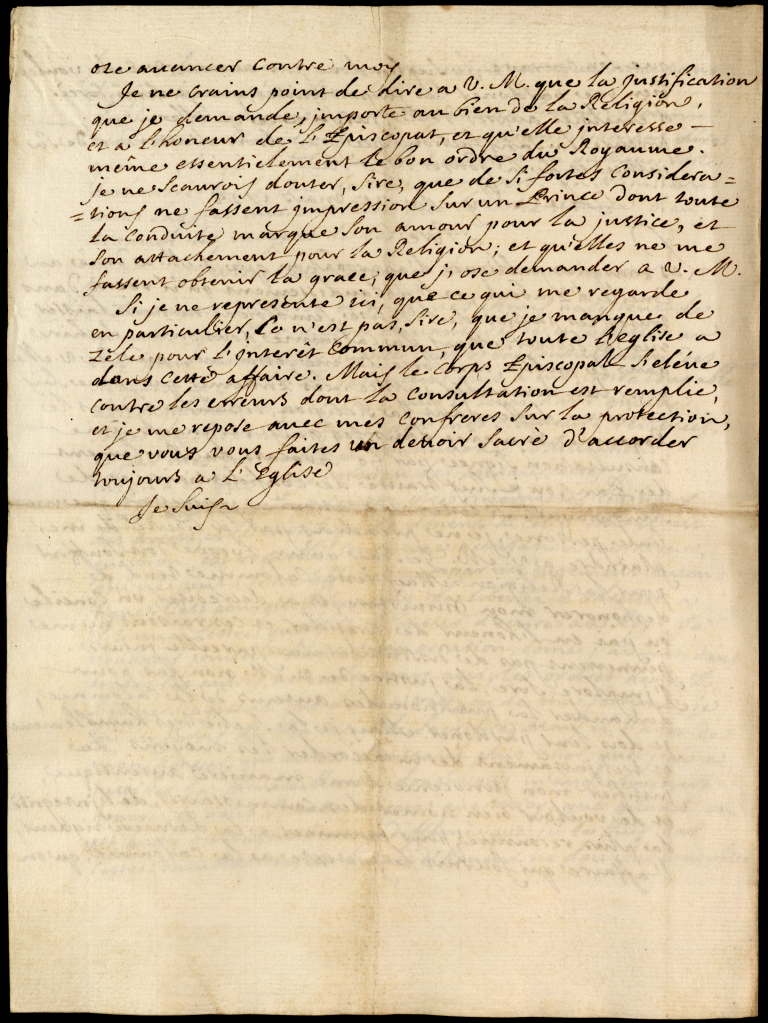 ose auancer contre moy
Je ne crains point de dire a V. M. que la justification
que je demande, importe au bien de la Religion,
et a l'honeur de L'Episcopat, et qu'elle interesse
même essentielement le bon ordre du Royaume.
je ne scaurois douter, Sire, que de si fortes considera=
=tions ne fassent impression sur un Prince dont toute
la conduite marque son amour pour la justice, et
son attachement pour la Religion; et qu'elles ne me
fassent obtenir la grace, que j'ose demander a V. M.
Si je ne represente ici, que ce qui me regarde
en particulier, Ce n'est pas, Sire, que je manque de
zèle pour l'interêt commun, que toute l'eglise a
dans cette affaire. Mais le corps Episcopal s'elève
contre les erreurs dont la consultation est remplie,
et je me repose avec mes confreres sur la protection,
que vous vous faites un devoir sacrè d'accorder
toujours a L'Eglise
Je suis